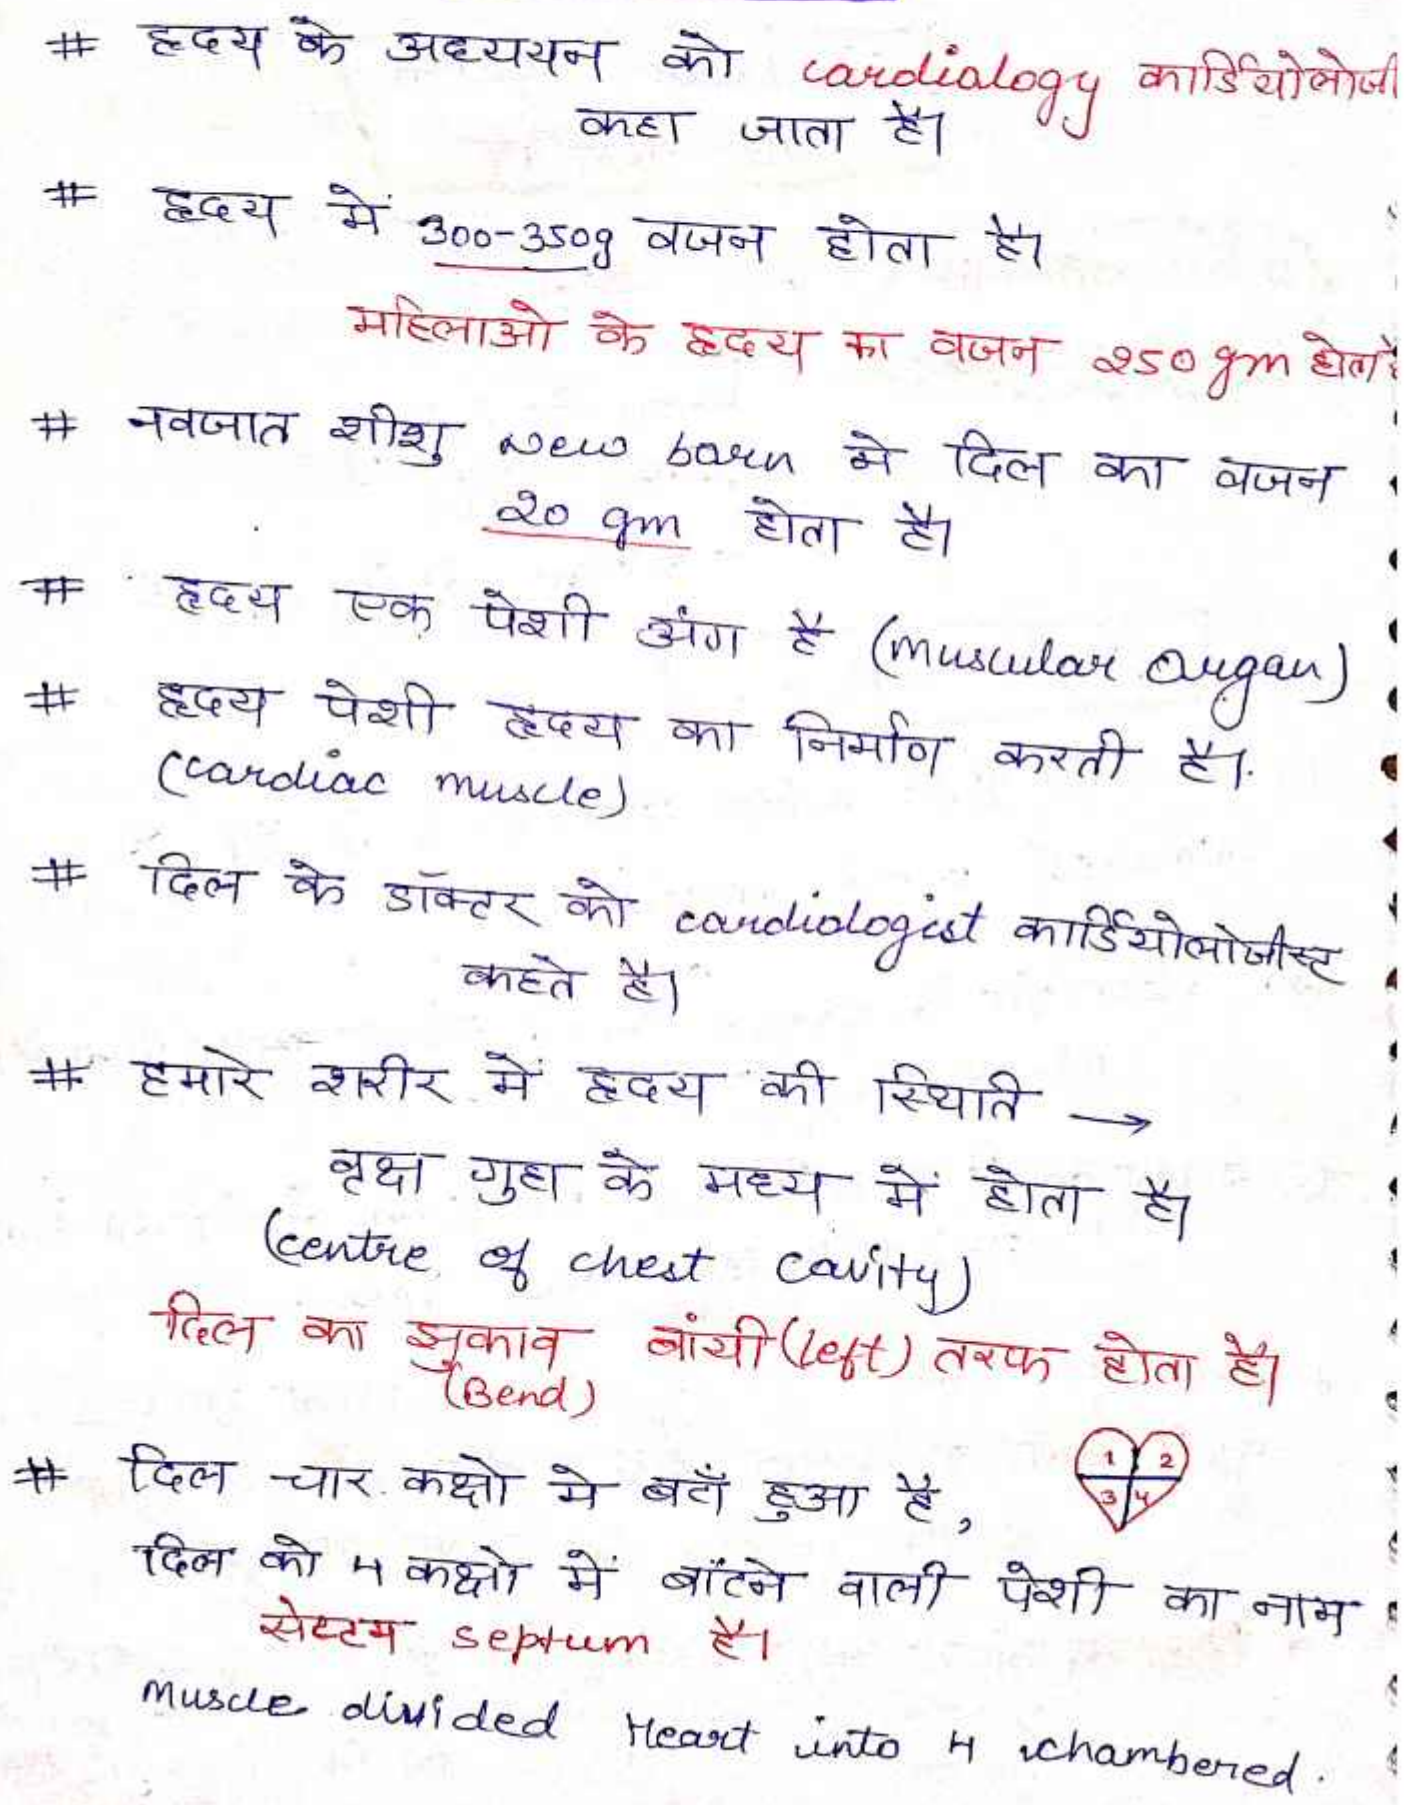 # हृदय के अध्ययन को cardialogy कार्डियोलोजी
कहा जाता है।
# हृदय में 300-350g वजन होता है।
महिलाओ के हृदय का वजन 250 gm होता है
# नवजात शीशु New barn मे दिल का वजन
20 gm होता है।
# हृदय एक पेशी अंग है (muscular organ)
# हृदय पेशी हृदय का निर्माण करती है।
(cardiac muscle)
# दिल के डॉक्टर को cardiologist कार्डियोलोजीस्ट
कहते है।
# हमारे शरीर में हृदय की स्थिति →
वृक्ष गुहा के मध्य में होता है।
(centre of chest cavity)
दिल का झुकाव बांयी (left) तरफ होता है।
(Bend)
# दिल चार कक्षो मे बटाँ हुआ है,
1 2
3 4
दिल को 4 कक्षो में बाँटने वाली पेशी का नाम
सेप्टम septum है।
muscle divided Heart into 4 chambered.